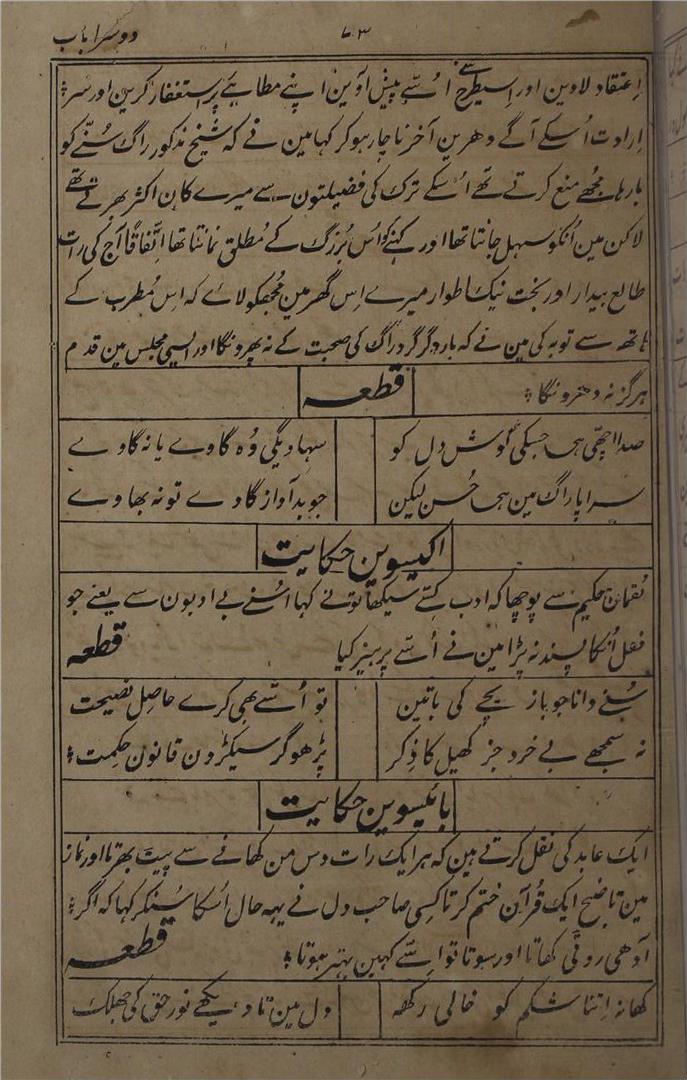 دوسرا باب
۷۳
اِعتقاد لاوین اور اِسیطرح سے اُسّے پیش آوین اپنے مطایبے پر اِستغفار کرین اور سر
اِرادت اُسکے آگے دھرین آخر ناچار ہو کر کہا مین نے کہ شیخ مذکور راگ سُنّے کو
بارہا مجُھے منع کرتے تھے اُسکے ترک کی فضیلتون سے میرے کان اکثر بھرتے تھے
لاکن مین اُنکو سہل جانتا تھا اور کہنے کو اُس بُزرگ کے مُطلق نمانتا تھا اِتّفاقاً آج کی رات
طالع بیدار اور بخت نیک اطوار میرے اِس گھر مین مُجھکو لائے کہ اِس مُطرب کے
ہاتھ سے توبہ کی مین نے کہ بارِ دگر گرد راگ کی صحبت کے نہ پھرونگا اور ایسی مجلس مین قدم
ہرگز نہ دھرونگا
قطعہ
صدا اچھّی ہی جسکی گوش دل کو
سہاویگی وُہ گاوے یا نہ گاوے
سراپا راگ مین ہی حُسن لیکن
جو بد آواز گاوے تو نہ بھاوے
اکیسوین حکایت
لقمان حکیم سے پوچھا کہ ادب کسّے سیکھا تو نے کہا اُسنے بے ادبون سے یعنے جو
فعل اُنکا پسند نہ پڑا مین نے اُسّے پرہیز کیا
قطعہ
سُنے دانا جو بازیچے کی باتین
تو اُسّے بھی کرے حاصِل نصیحت
نہ سمجھے بے خرد جز کھیل کا ذِکر
پڑھو گر سیکڑون قانون حِکمت
بائیسوین حکایت
ایک عابد کی نقل کرتے ہین کہ ہر ایک رات دس من کھانے سے پیٹ بھرتا اور نماز
مین تا صُبح ایک قُرآن ختم کرتا کسی صاحب دل نے یہہ حال اُسکا سُنکر کہا کہ اگر
آدھی روٹی کھاتا اور سوتا تو اسّے کہین بہتر ہوتا
قطعہ
کھانہ اِتنا شکم کو خالی رکھہ
دل مین تا دیکھے نور حق کی جھلک
۷۳